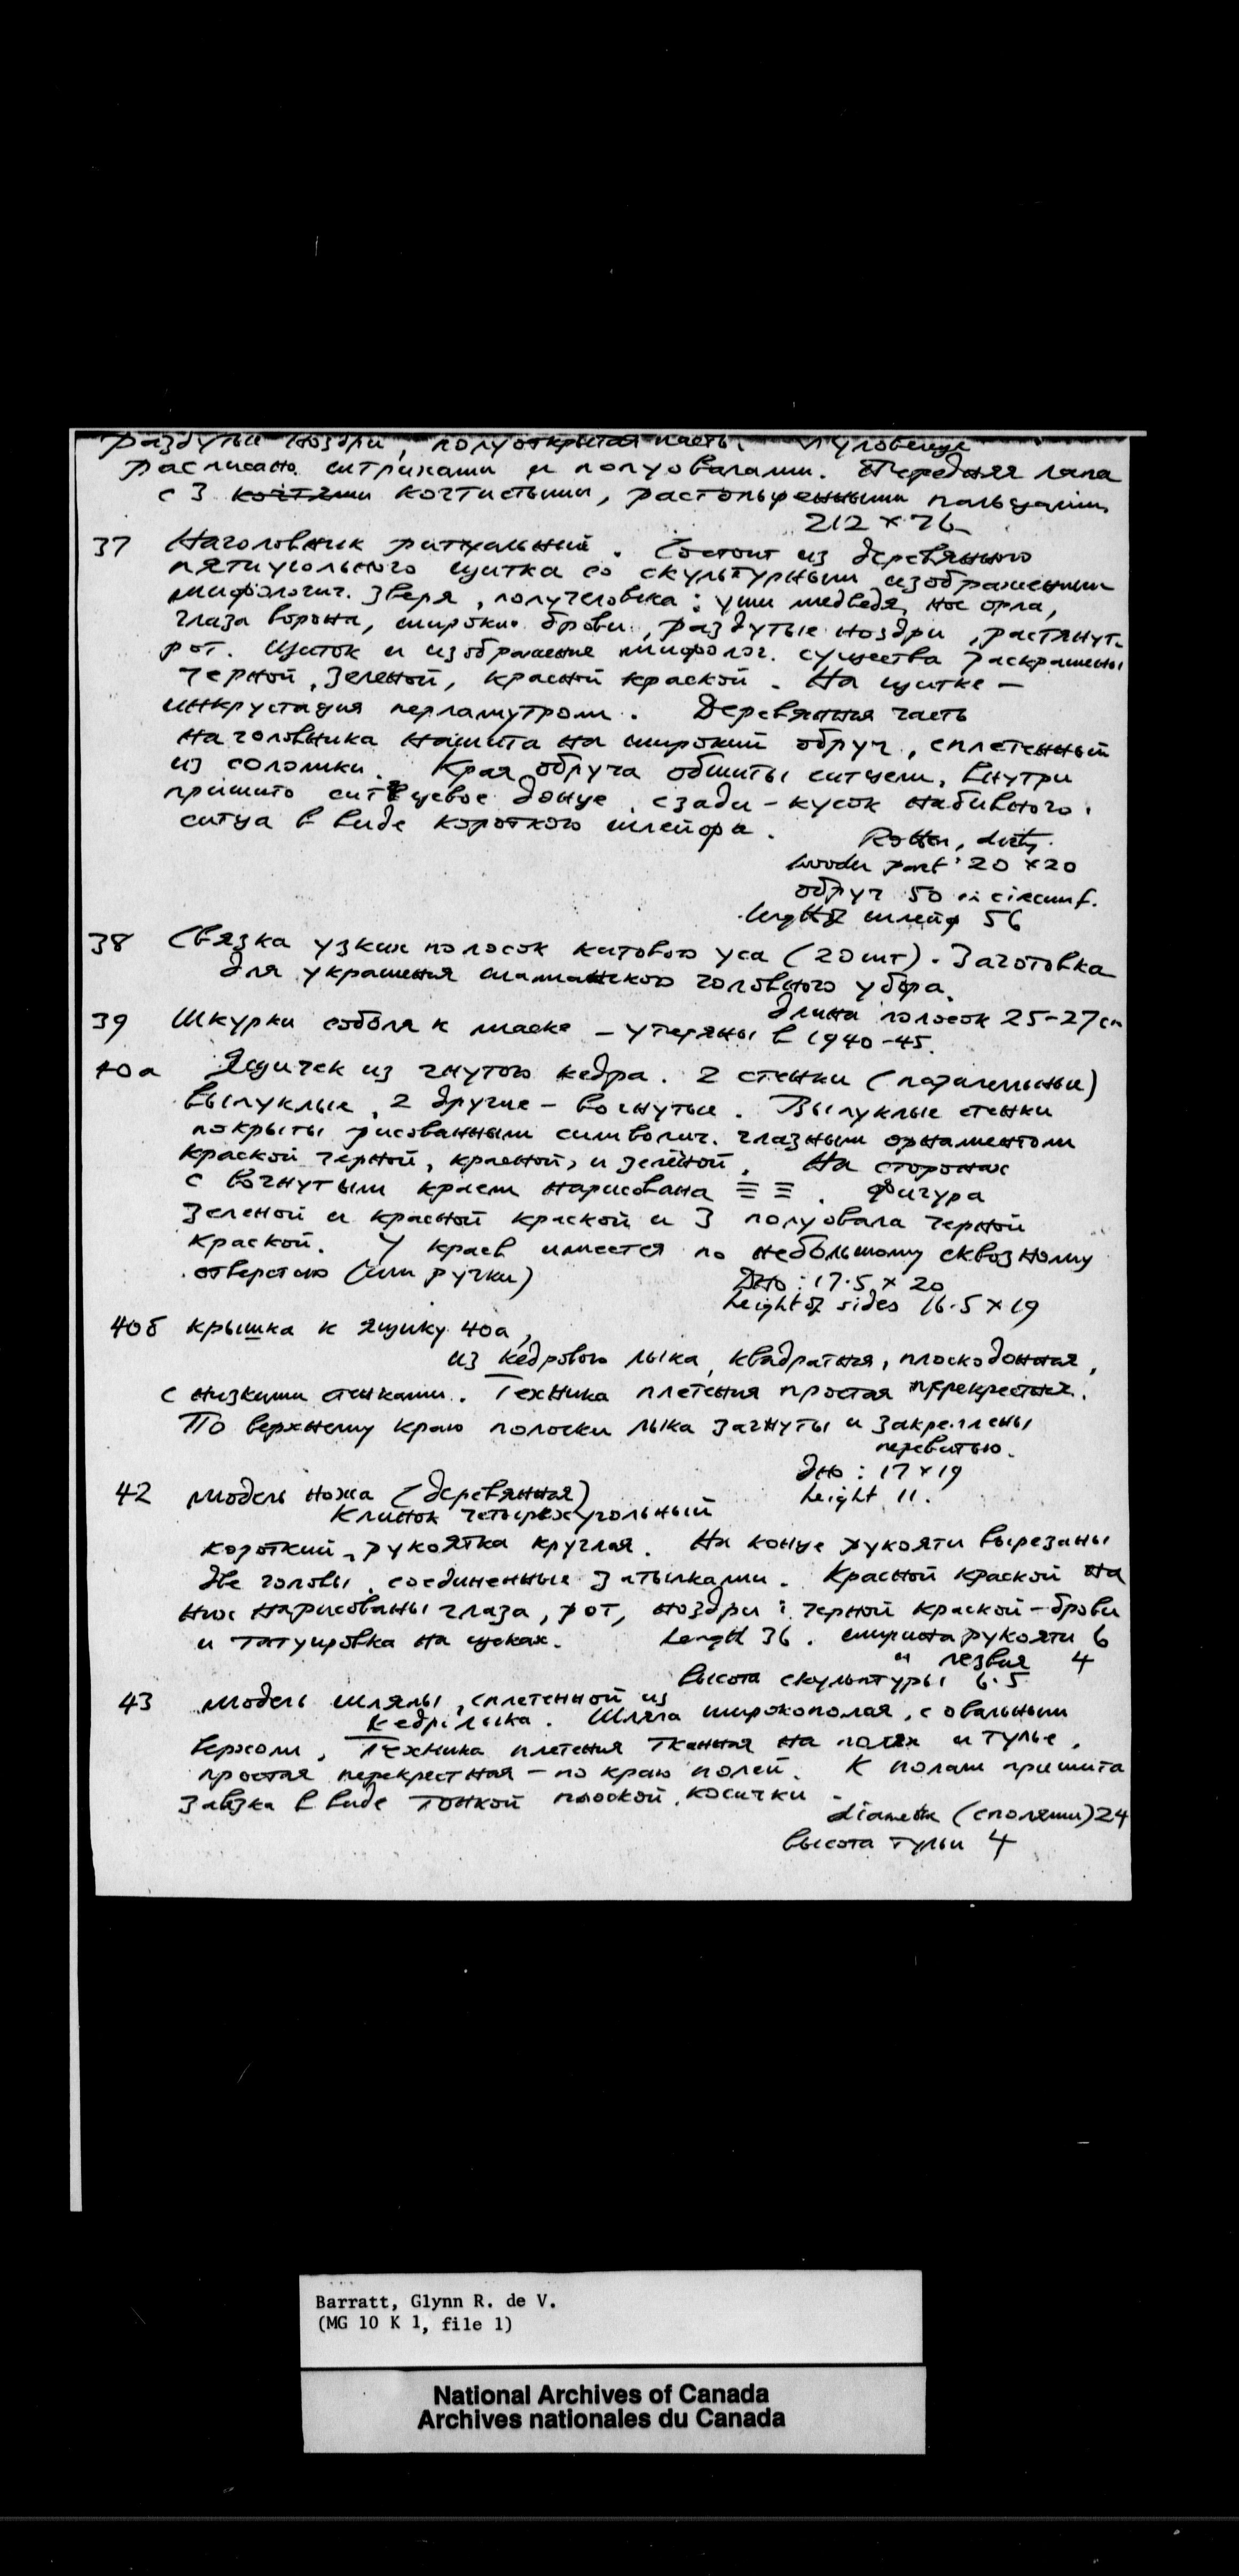 раздутые ноздри, полуоткрытая пасть. Туловище
расписано штрихами и полуовалами. Передняя лапа
с 3 когтями когтистыми, растопыренными пальцами
212 × 76
37 Наголовник ритуальный. Состоит из деревянного
пятиугольного щитка со скульптурным изображением
мифологич. зверя, получеловека: уши медведя, нос орла,
глаза ворона, широкие брови, раздутые ноздри, растянут.
рот. Щиток и изображение мифолог. существа раскрашены
черной, зеленой, красной краской. На щитке –
инкрустация перламутром. Деревянная часть
наголовника нашита на широкий обруч, сплетенный
из соломки. Края обруча обшиты ситцем, внутри
пришито ситцевое донце, сзади – кусок набивного
ситца в виде короткого шлейфа.
Rotten, dirty.
wooden part: 20 × 20
обруч 50 in circumf.
length of шлейф 56
38 Связка узких полосок китового уса (20 шт). Заготовка
для украшения шаманского головного убора.
длина полосок 25-27 cm
39 Шкурки соболя к маске – утеряны в 1940-45.
40а Ящичек из гнутого кедра. 2 стенки (параллельные)
выпуклые, 2 другие – вогнутые. Выпуклые стенки
покрыты рисованным символич. глазным орнаментом
краской черной, красной, и зелёной. На сторонах
с вогнутым краем нарисована ☰ ☰. Фигура
зеленой и красной краской и 3 полуовала черной
краской. У краев имеется по небольшому сквозному
отверстию (или ручки)
Дно: 17·5 × 20
height of sides 16·5 × 19
40б крышка к ящику 40а,
из кедрового лыка, квадратная, плоскодонная,
с низкими стенками. Техника плетения простая перекрестная.
По верхнему краю полоски лыка загнуты и закреплены
перевитью.
дно: 17 × 19
height 11.
42 модель ножа (деревянная)
Клинок четырехугольный
короткий, рукоятка круглая. На конце рукояти вырезаны
две головы, соединенные затылками. Красной краской на
них нарисованы глаза, рот, ноздри; черной краской – брови
и татуировка на щеках. Length 36. ширина рукояти 6
" лезвия 4
высота скульптуры 6·5
43 модель шляпы, сплетенной из
кедр. лыка. Шляпа широкополая, с овальным
верхом. Техника плетения тканная на полях и тулье,
простая перекрестная – по краю полей. К полям пришита
завязка в виде тонкой плоской косички.
diameter (с полями) 24
высота тульи 4
Barratt, Glynn R. de V.
(MG 10 K 1, file 1)
National Archives of Canada
Archives nationales du Canada